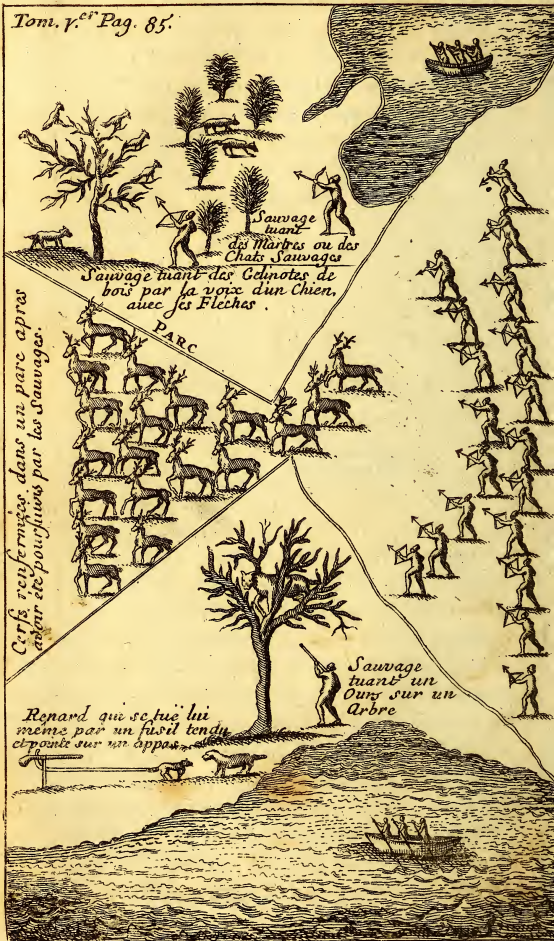 Tom. 1.er Pag. 85.
Sauvage
tuant
des Martres ou des
Chats Sauvages
Sauvage tuant des Gelinotes de
bois par la voix d'un Chien,
avec ses Fleches.
PARC
Cerfs renfermées dans un parc apres
avoir été poursuivis par les Sauvages.
Sauvage
tuant un
Ours sur un
Arbre
Renard qui se tuë lui
méme par un fusil tendu
et pointé sur un appas